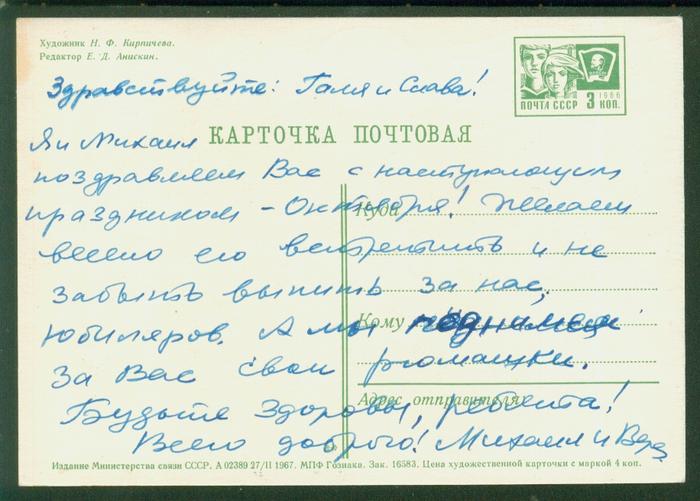 Художник Н. Ф. Кирпичева.
Редактор Е. Д. Анискин.
Здравствуйте: Галя и Слава!
ПОЧТА СССР 3 КОП. 1966
Я и Михаил
КАРТОЧКА ПОЧТОВАЯ
поздравляем Вас с наступающим
праздником – Октября! Желаем
Куда
весело его встретить и не
забыть выпить за нас,
юбиляров. А мы поднимем
Кому
за Вас свои рюмашки.
Адрес отправителя:
Будьте здоровы, ребята!
Всего доброго! Михаил и Вера
Издание Министерства связи СССР. А 02389 27/II 1967. МПФ Гознака. Зак. 16583. Цена художественной карточки с маркой 4 коп.